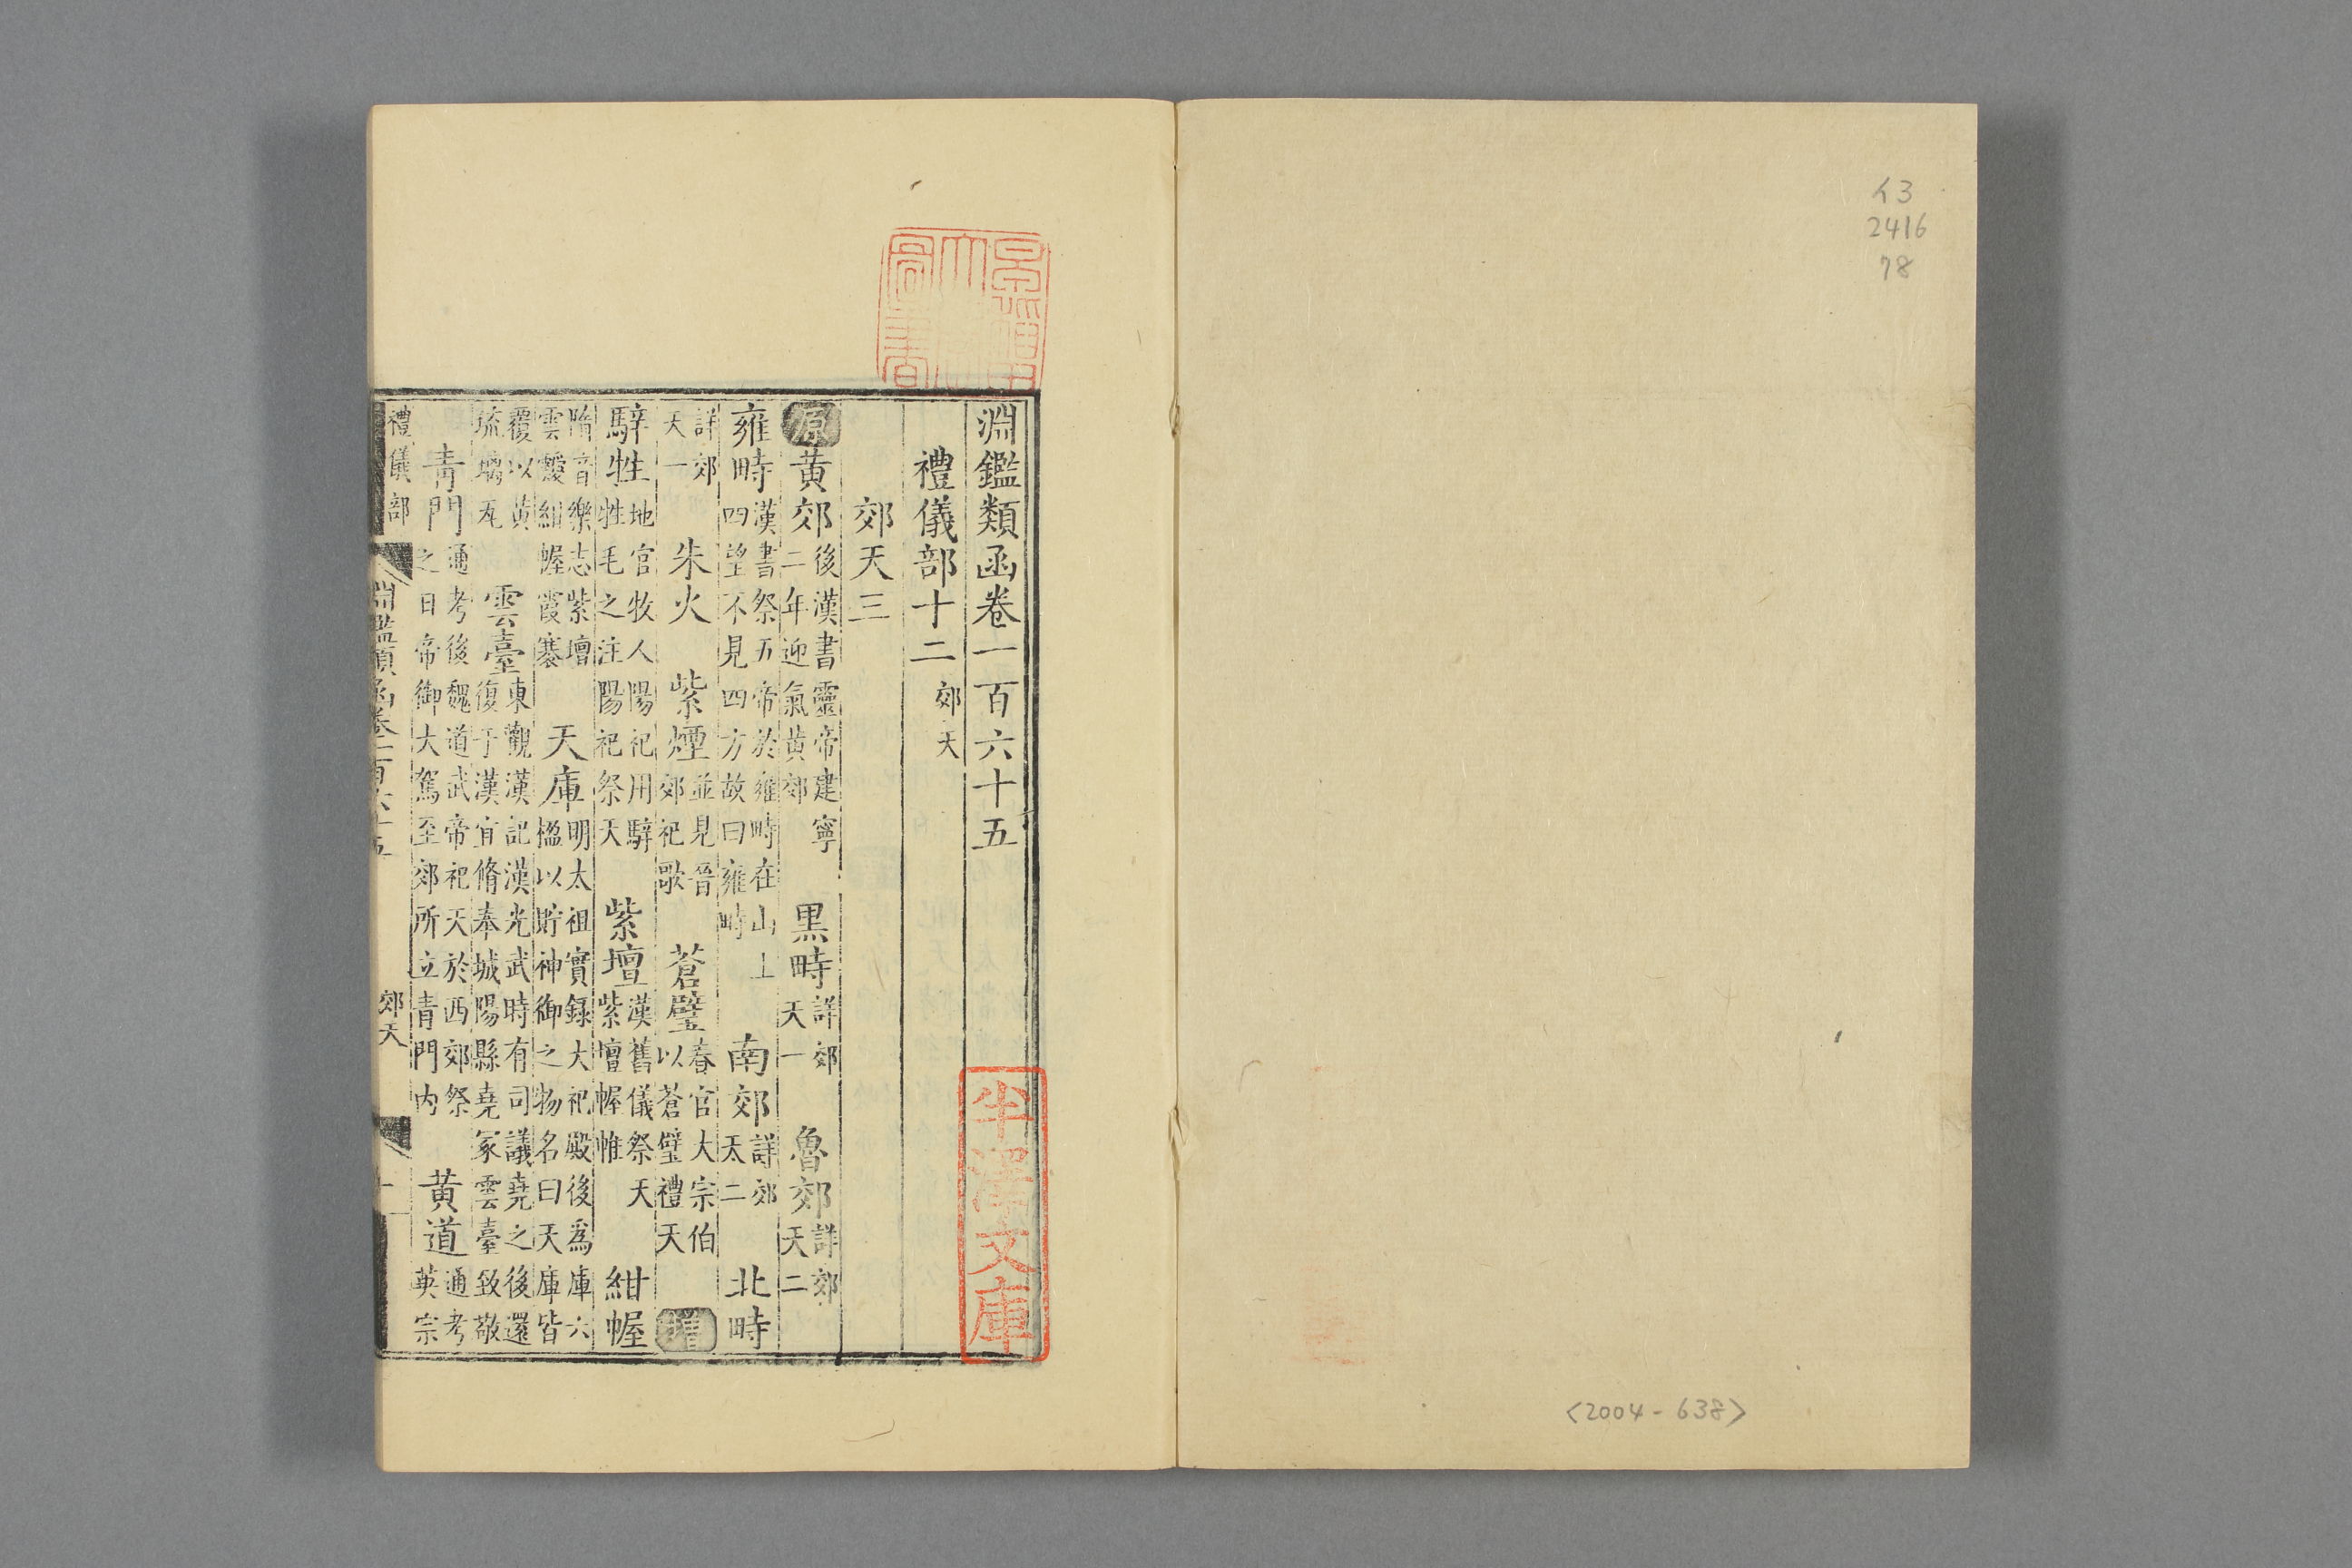 2416
78
<2004-638>
淵鑑類函卷一百六十五
禮儀部十二 郊天
郊天三
原 黃郊 後漢書靈帝建寧二年迎氣黃郊 黑畤 詳郊天一 魯郊 詳郊天二
雍畤 漢書祭五帝於雍畤在山上四望不見四方故曰雍畤 南郊 詳郊天二 北畤
詳郊天一 朱火 紫煙 並見晉郊祀歌 蒼璧 春官大宗伯以蒼璧禮天 增
騂牲 地官牧人陽祀用騂牲毛之注陽祀祭天 紫壇 漢舊儀祭天紫壇幄帷 紺幄
隋音樂志紫壇雲靉紺幄霞褰 天庫 明太祖實錄大祀殿後為庫六楹以貯神御之物名曰天庫皆
覆以黃琉璃瓦 雲臺 東觀漢記漢光武時有司議堯之後還復于漢宜脩奉城陽縣堯冢雲臺致敬
青門 通考後魏道武帝祀天於西郊祭之日帝御大駕至郊所立青門內 黃道 通考英宗
禮儀部 淵鑑類函卷一百六十五 郊天 一
半澤文庫